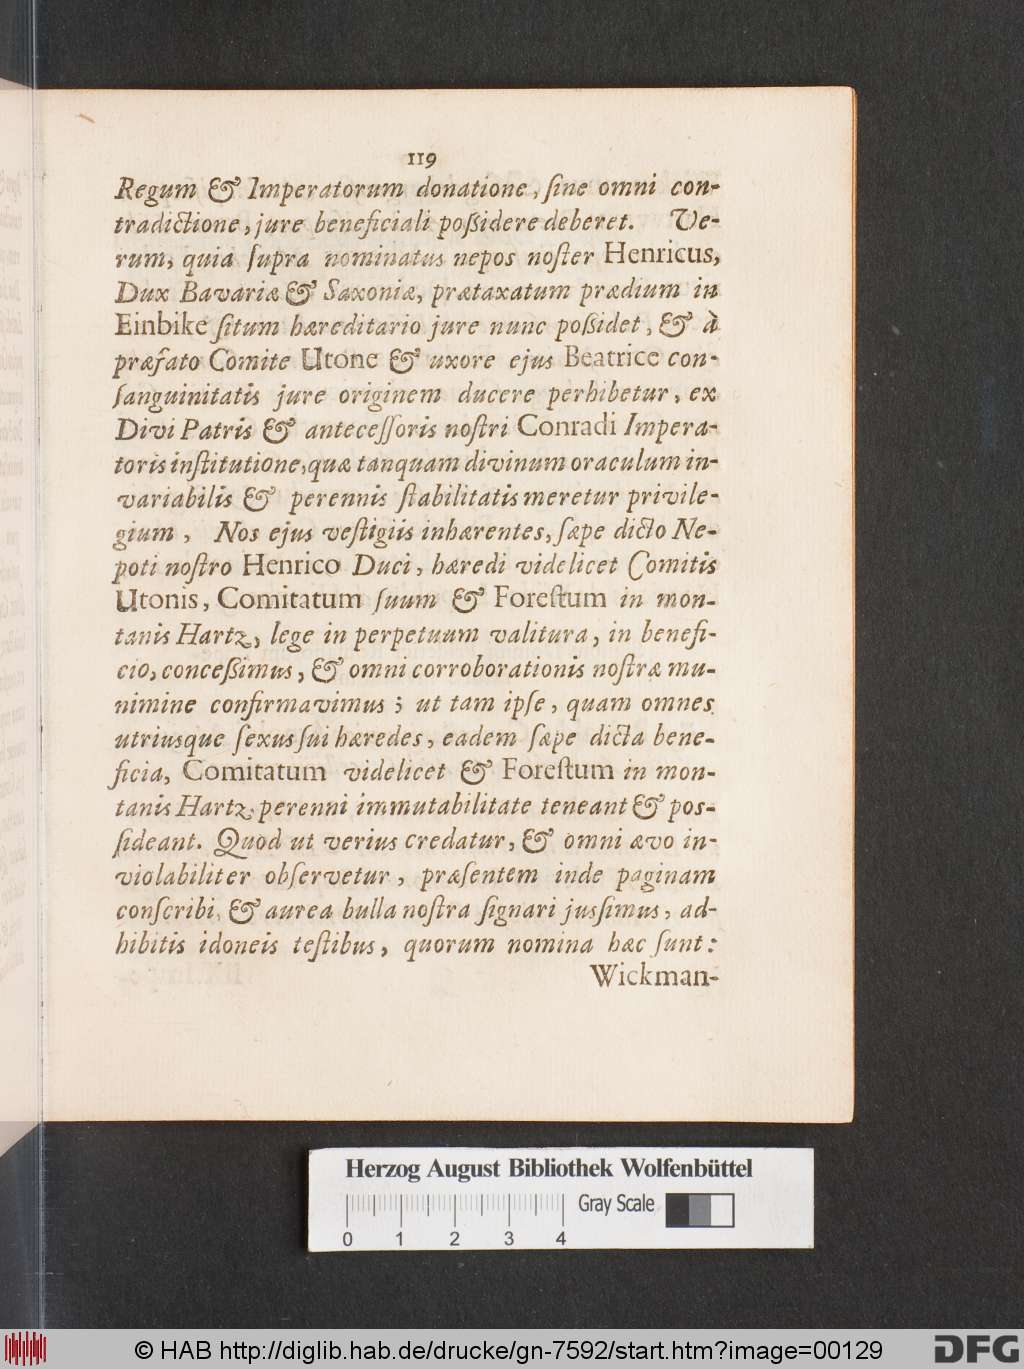 119
Regum & Imperatorum donatione, ſine omni con-
tradictione, jure beneficiali poßidere deberet. Ve-
rum, quia ſupra nominatus nepos noſter Henricus,
Dux Bavariæ & Saxoniæ, prætaxatum prædium in
Einbike ſitum hæreditario jure nunc poßidet, & à
præfato Comite Utone & uxore ejus Beatrice con-
ſanguinitatis jure originem ducere perhibetur, ex
Divi Patris & anteceſſoris noſtri Conradi Impera-
toris inſtitutione, quæ tanquam divinum oraculum in-
variabilis & perennis ſtabilitatis meretur privile-
gium, Nos ejus veſtigiis inhærentes, ſæpe dicto Ne-
poti noſtro Henrico Duci, hæredi videlicet Comitis
Utonis, Comitatum ſuum & Foreſtum in mon-
tanis Hartz, lege in perpetuum valitura, in benefi-
cio, conceßimus, & omni corroborationis noſtræ mu-
nimine confirmavimus; ut tam ipſe, quam omnes
utriusque ſexus ſui hæredes, eadem ſæpe dicta bene-
ficia, Comitatum videlicet & Foreſtum in mon-
tanis Hartz, perenni immutabilitate teneant & poſ-
ſideant. Quod ut verius credatur, & omni ævo in-
violabiliter obſervetur, præſentem inde paginam
conſcribi, & aurea bulla noſtra ſignari jusſimus, ad-
hibitis idoneis teſtibus, quorum nomina hæc ſunt:
Wickman-
Herzog August Bibliothek Wolfenbüttel
Gray Scale
0 1 2 3 4
© HAB http://diglib.hab.de/drucke/gn-7592/start.htm?image=00129
DFG